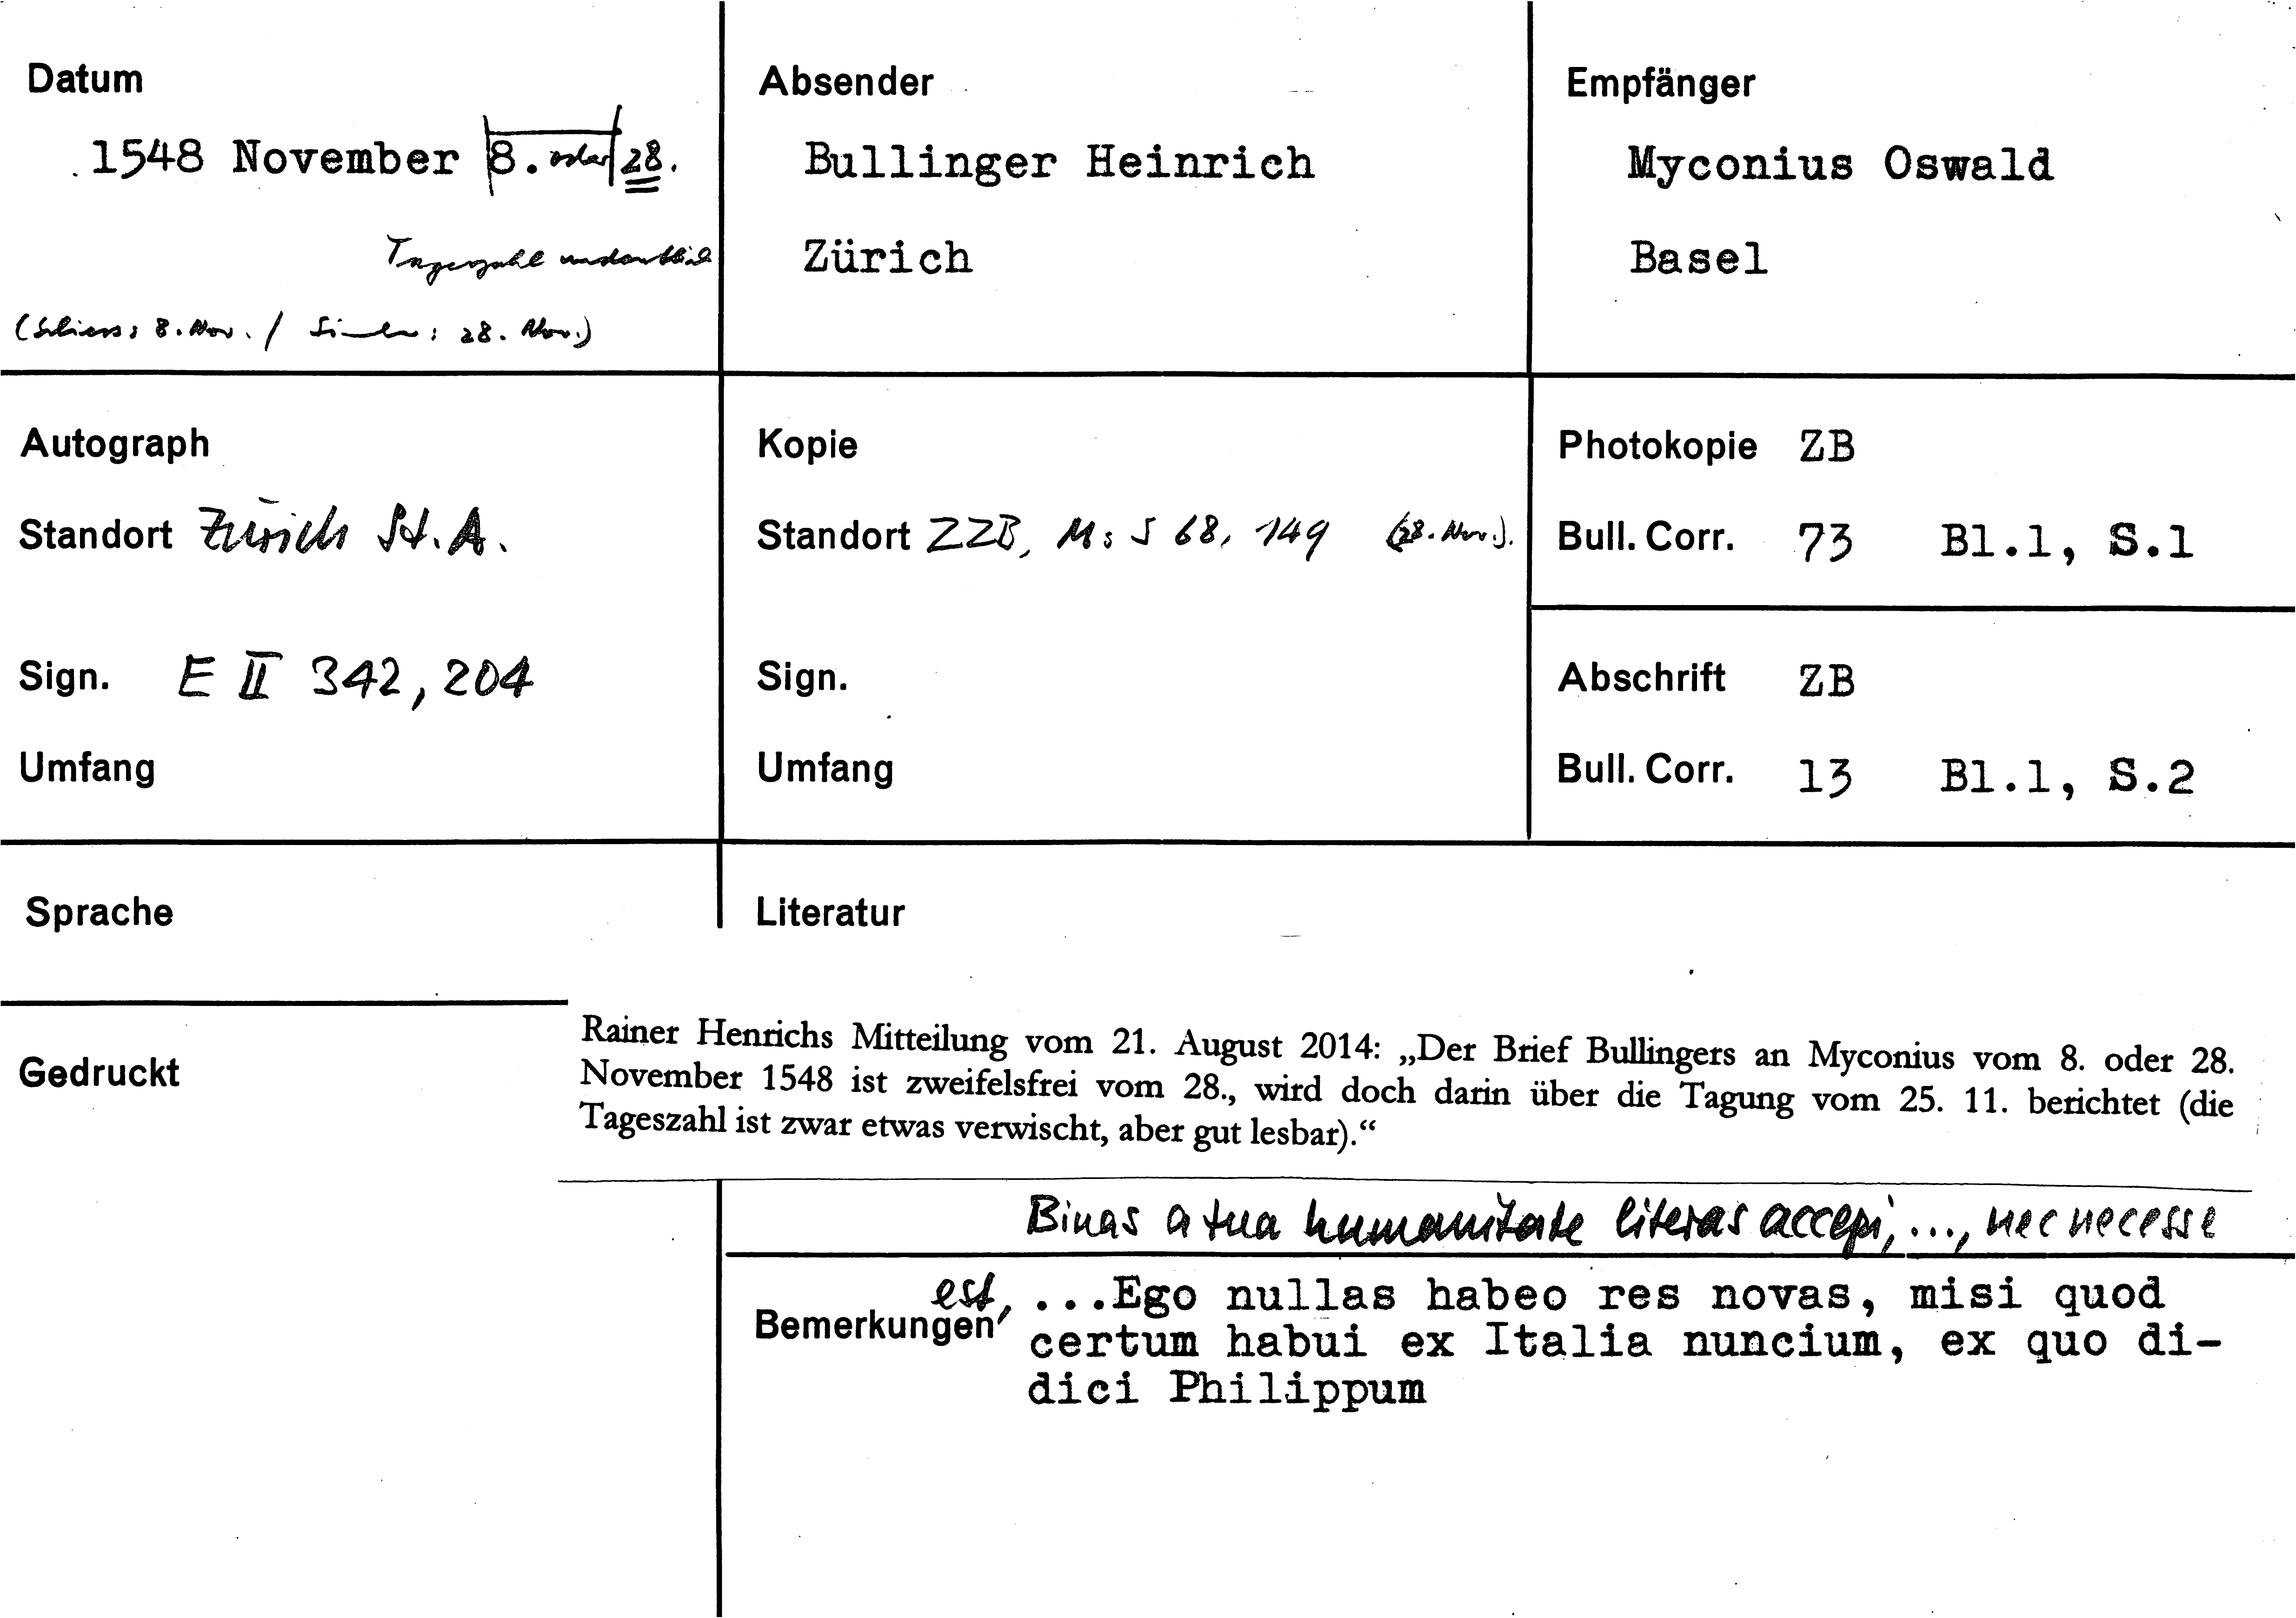 Datum
1548 November 8. oder 28.
Tageszahl undeutlich
(Schiess: 8. Nov. / Simler: 28. Nov.)
Absender
Bullinger Heinrich
Zürich
Empfänger
Myconius Oswald
Basel
Autograph
Standort Zürich St.A.
Sign. E II 342, 204
Umfang
Kopie
Standort ZZB, Ms S 68, 149 (28. Nov.).
Sign.
Umfang
Photokopie ZB
Bull. Corr. 73 Bl.1, S.1
Abschrift ZB
Bull. Corr. 13 Bl.1, S.2
Sprache
Literatur
Gedruckt
Rainer Henrichs Mitteilung vom 21. August 2014: „Der Brief Bullingers an Myconius vom 8. oder 28.
November 1548 ist zweifelsfrei vom 28., wird doch darin über die Tagung vom 25. 11. berichtet (die
Tageszahl ist zwar etwas verwischt, aber gut lesbar).“
Binas a tua humanitate literas accepi, ..., nec necesse
Bemerkungen est, ...Ego nullas habeo res novas, misi quod
certum habui ex Italia nuncium, ex quo di-
dici Philippum